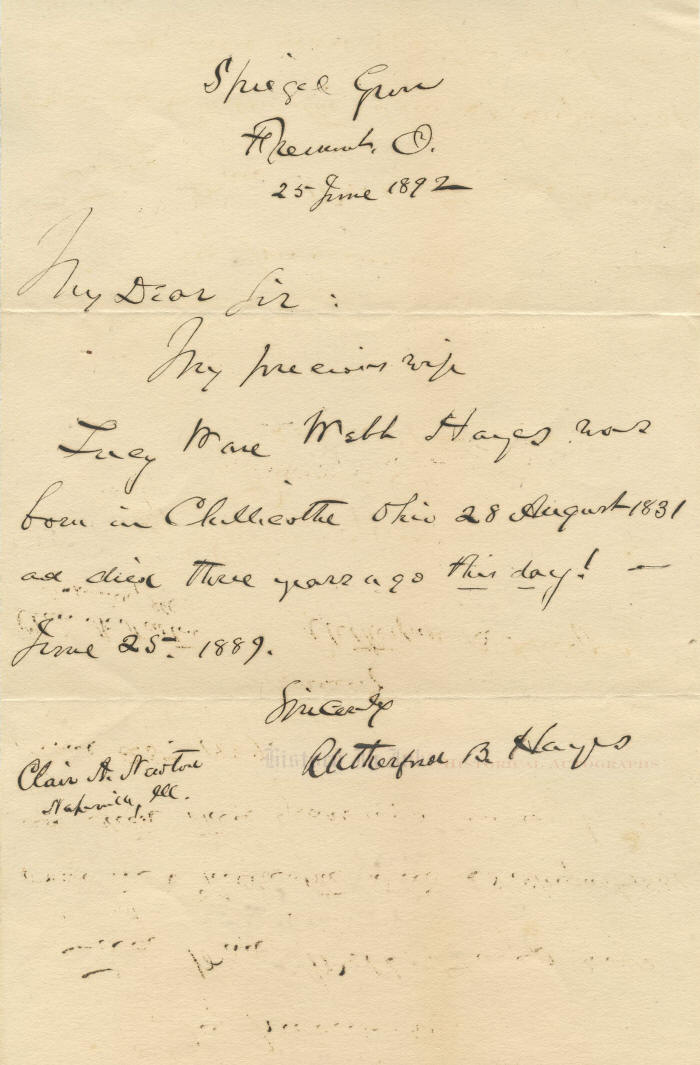 Spiegel Grove
Fremont, O.
25 June 1892
My Dear Sir :
My precious wife
Lucy Ware Webb Hayes was
born in Chillicothe Ohio 28 August 1831
and died three years ago this day! —
June 25th. 1889.
Sincerely
Rutherford B Hayes
Clair A. Newton
Naperville, Ill.
HISTORICAL AUTOGRAPHS